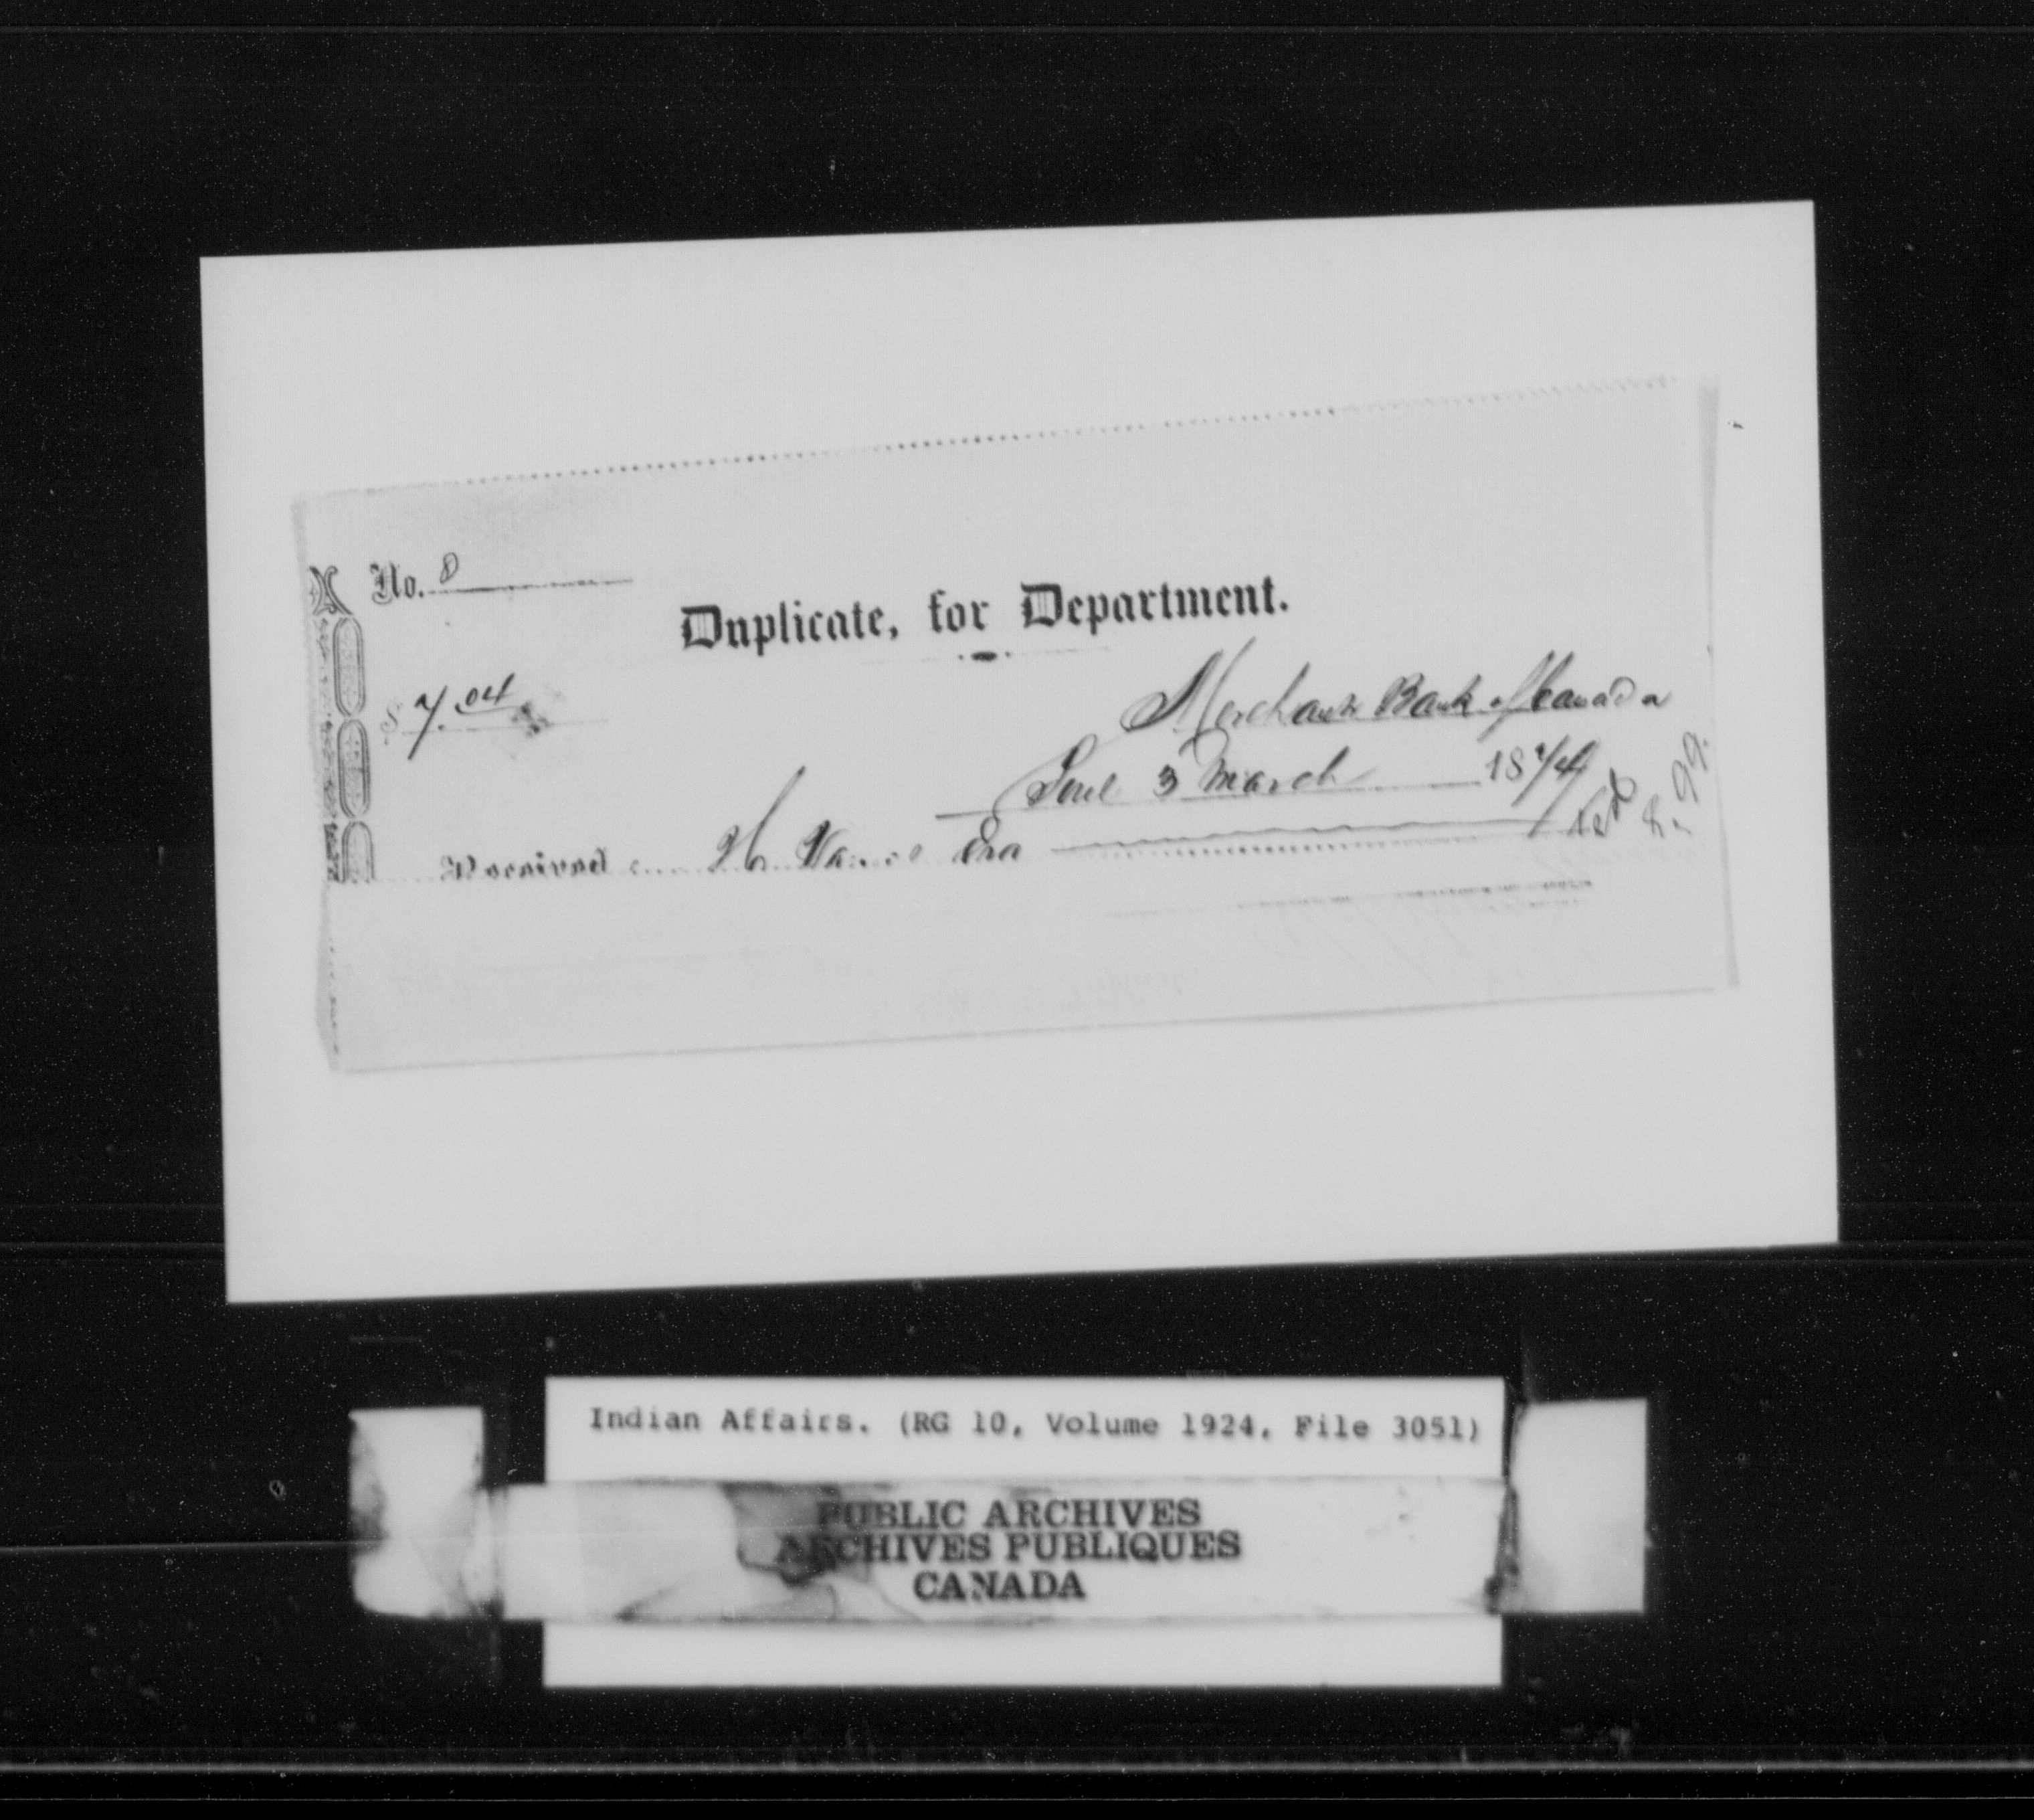 No. 8
Duplicate, for Department.
$ 7.04
Merchants Bank of Canada
Sorel 3 March 1874
Received H. Vassal Esq
Indian Affairs. (RG 10, Volume 1924, File 3051)
PUBLIC ARCHIVES
ARCHIVES PUBLIQUES
CANADA